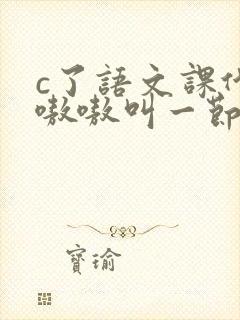 c了語文課
嗷嗷叫一節
寶瑜